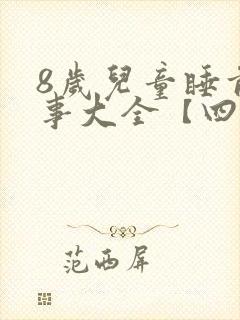 8歲兒童睡前
事大全【四
范西屏